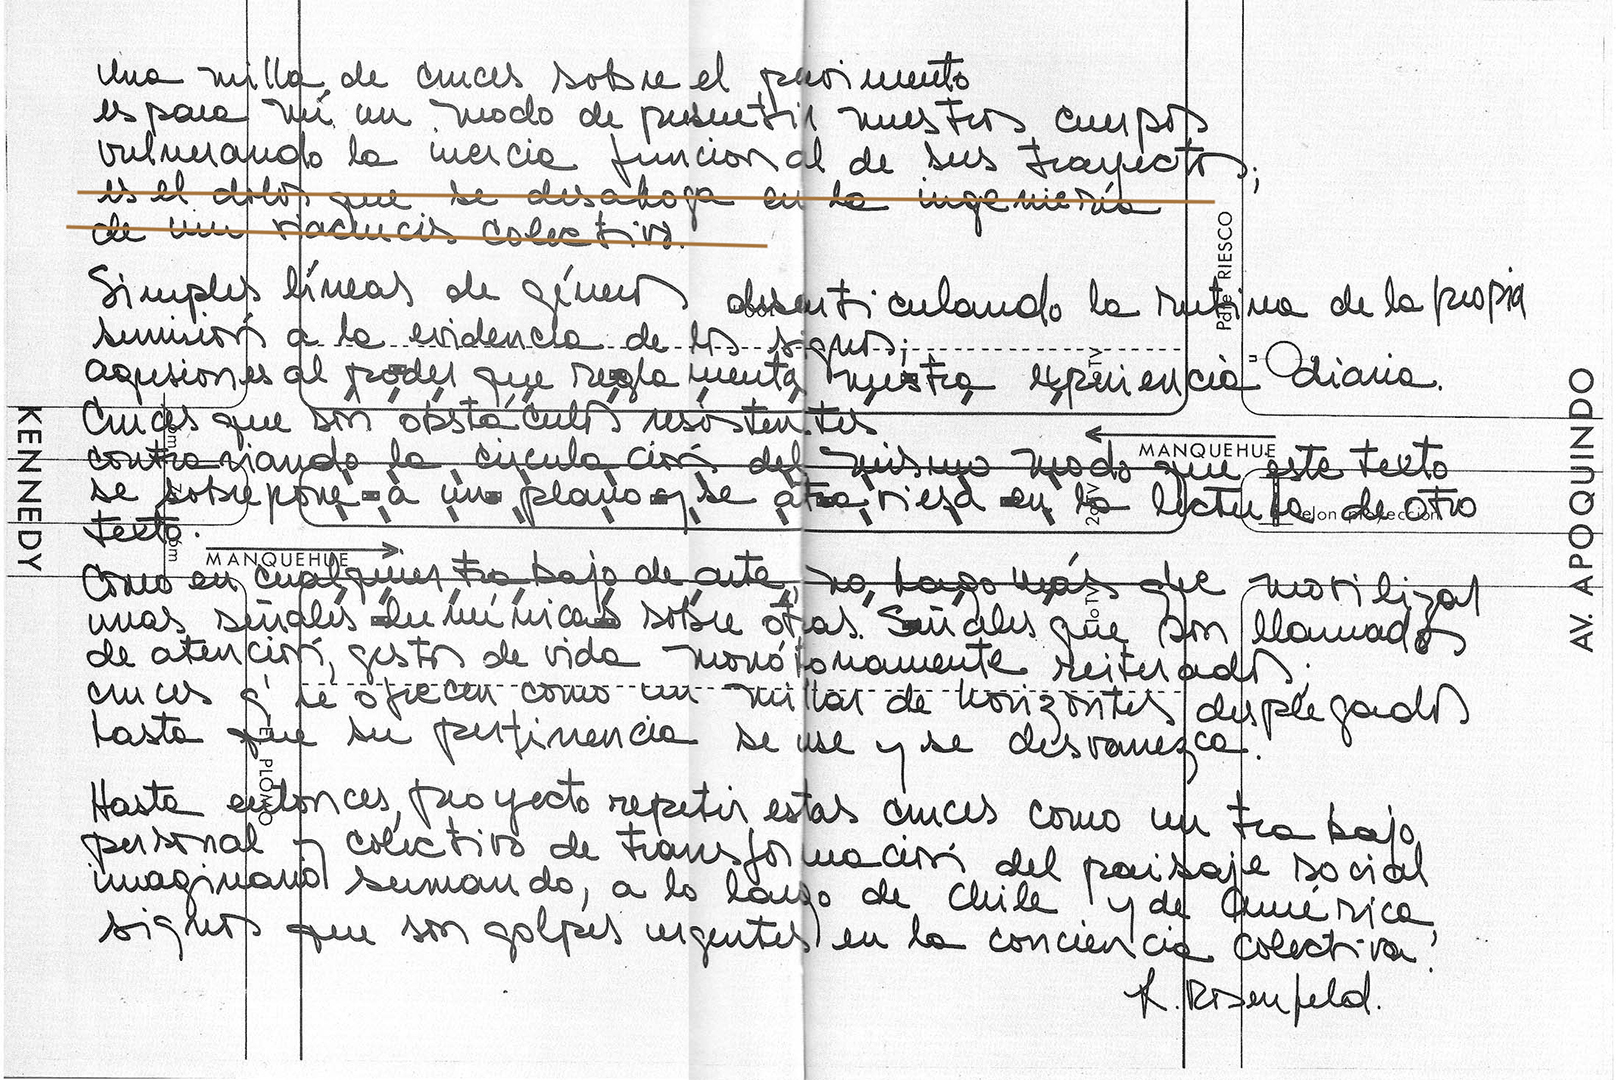 Una milla de cruces sobre el pavimento
es para mí un modo de presentir nuestros cuerpos
vulnerando la inercia funcional de sus trayectos;
es el dolor que se desahoga en la ingeniería
de un viacrucis colectivo.
Simples líneas de género desarticulando la rutina de la propia
sumisión a la evidencia de los signos;
agresiones al poder que reglamenta nuestra experiencia diaria.
Cruces que son obstáculos resistentes
contrariando la circulación del mismo modo que este texto
se sobrepone a un plano y se atraviesa en la lectura de otro
texto.
Como en cualquier trabajo de arte, no hago más que movilizar
unas señales lumínicas sobre otras. Señales que son llamados
de atención, gestos de vida monótonamente reiterados;
cruces q' se ofrecen como un millar de horizontes desplegados
hasta que su pertinencia se use y se desvanezca.
Hasta entonces, proyecto repetir estas cruces como un trabajo
personal y colectivo de transformación del paisaje social
imaginario sumando, a lo largo de Chile y de América,
signos que son golpes urgentes en la conciencia colectiva.
L. Rosenfeld.
KENNEDY
AV. APOQUINDO
Pdte RIESCO
MANQUEHUE
MANQUEHUE
EL PLOMO
telon proyeccion
2oTV